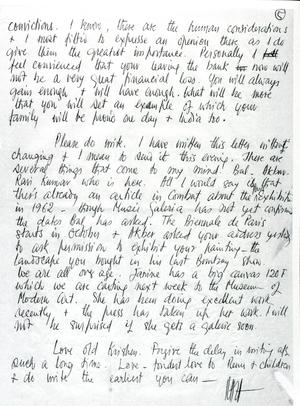 convictions. I know, there are the human considerations
& I most fittle to expresse an opinion there as I do
give them the greatest importance. Personally I
feel convinced that your leaving the bank now will
not be a very great financial loss. You will always
gain enough & will have enough. What will be more
that you will set an example of which your
family will be proud one day & India too.
Please do write. I have written this letter without
changing & I mean to send it this evening. There are
several things that come to my mind! But
Ravi Kumar who is here. All I would say is that
there's already an article in Combat about the exhibition
in 1962 - though Kunzi Galeria has not yet confirmed
the dates but has asked. The Biennale de Paris
starts in October & Akber asked your address yesterday
to ask permission to exhibit your painting - the
landscape you bought in his last Bombay show.
We are all ok. Janine has a big canvas 120 F
which we are carting next week to the Museum of
Modern Art. She has been doing excellent work
recently & the press has taken up her work. I will
not be surprised if she gets a galerie soon.
Love old Krishen. Forgive the delay in writing after
such a long time. Love - fondest love to them & children
& do write the earliest you can -